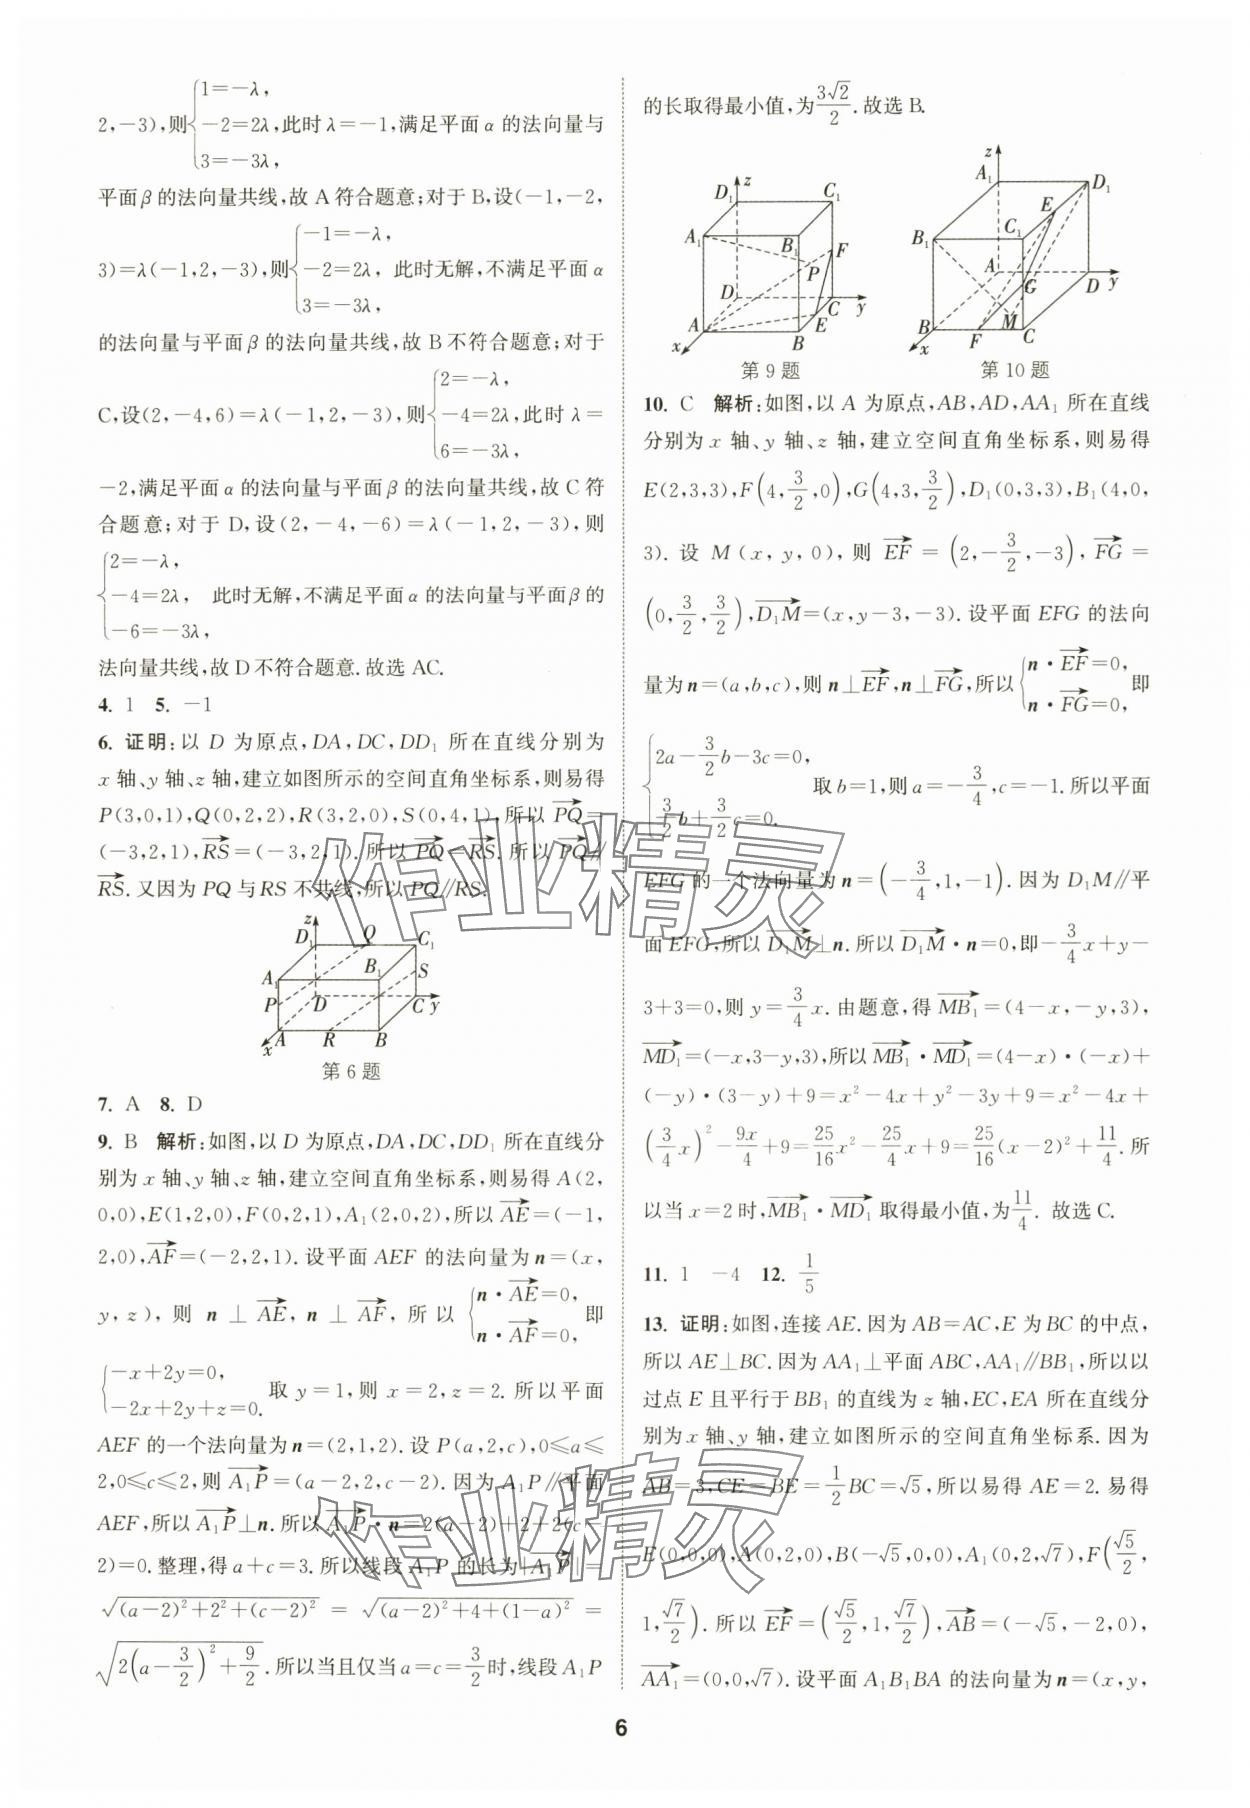 2,-3),则{1=-λ, -2=2λ, 3=-3λ, 此时λ=-1,满足平面α的法向量与
平面β的法向量共线,故 A 符合题意;对于 B,设(-1,-2,
3)=λ(-1,2,-3),则{-1=-λ, -2=2λ, 3=-3λ, 此时无解,不满足平面α
的法向量与平面β的法向量共线,故 B 不符合题意;对于
C,设(2,-4,6)=λ(-1,2,-3),则{2=-λ, -4=2λ, 6=-3λ, 此时λ=
-2,满足平面α的法向量与平面β的法向量共线,故 C 符
合题意;对于 D,设(2,-4,-6)=λ(-1,2,-3),则
{2=-λ, -4=2λ, -6=-3λ, 此时无解,不满足平面α的法向量与平面β的
法向量共线,故 D 不符合题意.故选 AC.
4. 1 5. -1
6. 证明:以 D 为原点,DA,DC,DD₁ 所在直线分别为
x 轴、y 轴、z 轴,建立如图所示的空间直角坐标系,则易得
P(3,0,1),Q(0,2,2),R(3,2,0),S(0,4,1),所以 PQ→=
(-3,2,1),RS→=(-3,2,1).所以 PQ→=RS→.所以 PQ→∥
RS→.又因为 PQ 与 RS 不共线,所以 PQ∥RS.
z D₁ Q C₁ A₁ B₁ S P D C y A R B x
第 6 题
7. A 8. D
9. B 解析:如图,以 D 为原点,DA,DC,DD₁ 所在直线分
别为 x 轴、y 轴、z 轴,建立空间直角坐标系,则易得 A(2,
0,0),E(1,2,0),F(0,2,1),A₁(2,0,2),所以 AE→=(-1,
2,0),AF→=(-2,2,1).设平面 AEF 的法向量为 n=(x,
y,z),则 n⊥AE→,n⊥AF→,所以{n·AE→=0, n·AF→=0, 即
{-x+2y=0, -2x+2y+z=0. 取 y=1,则 x=2,z=2.所以平面
AEF 的一个法向量为 n=(2,1,2).设 P(a,2,c),0≤a≤
2,0≤c≤2,则 A₁P→=(a-2,2,c-2).因为 A₁P∥平面
AEF,所以 A₁P→⊥n.所以 A₁P→·n=2(a-2)+2+2(c-
2)=0.整理,得 a+c=3.所以线段 A₁P 的长为|A₁P→|=
√((a-2)²+2²+(c-2)²) = √((a-2)²+4+(1-a)²) =
√(2(a-3/2)²+9/2).所以当且仅当 a=c=3/2时,线段 A₁P
的长取得最小值,为3√2/2.故选 B.
D₁ z C₁ A₁ B₁ F P D C y A E B x
第 9 题
z A₁ D₁ E C₁ B₁ A G D y B F M C x
第 10 题
10. C 解析:如图,以 A 为原点,AB,AD,AA₁ 所在直线
分别为 x 轴、y 轴、z 轴,建立空间直角坐标系,则易得
E(2,3,3),F(4,3/2,0),G(4,3,3/2),D₁(0,3,3),B₁(4,0,
3).设 M(x,y,0),则 EF→=(2,-3/2,-3),FG→=
(0,3/2,3/2),D₁M→=(x,y-3,-3).设平面 EFG 的法向
量为 n=(a,b,c),则 n⊥EF→,n⊥FG→,所以{n·EF→=0, n·FG→=0, 即
{2a-3/2b-3c=0, 3/2b+3/2c=0. 取 b=1,则 a=-3/4,c=-1.所以平面
EFG 的一个法向量为 n=(-3/4,1,-1).因为 D₁M∥平
面 EFG,所以 D₁M→⊥n.所以 D₁M→·n=0,即-3/4x+y-
3+3=0,则 y=3/4x.由题意,得 MB₁→=(4-x,-y,3),
MD₁→=(-x,3-y,3),所以 MB₁→·MD₁→=(4-x)·(-x)+
(-y)·(3-y)+9=x²-4x+y²-3y+9=x²-4x+
(3/4x)²-9x/4+9=25/16x²-25/4x+9=25/16(x-2)²+11/4.所
以当 x=2 时,MB₁→·MD₁→取得最小值,为11/4. 故选 C.
11. 1 -4 12. 1/5
13. 证明:如图,连接 AE.因为 AB=AC,E 为 BC 的中点,
所以 AE⊥BC.因为 AA₁⊥平面 ABC,AA₁∥BB₁,所以以
过点 E 且平行于 BB₁ 的直线为 z 轴,EC,EA 所在直线分
别为 x 轴、y 轴,建立如图所示的空间直角坐标系.因为
AB=3,CE=BE=1/2BC=√5,所以易得 AE=2.易得
E(0,0,0),A(0,2,0),B(-√5,0,0),A₁(0,2,√7),F(√5/2,
1,√7/2).所以 EF→=(√5/2,1,√7/2),AB→=(-√5,-2,0),
AA₁→=(0,0,√7).设平面 A₁B₁BA 的法向量为 n=(x,y,
6
作业精灵
作业精灵